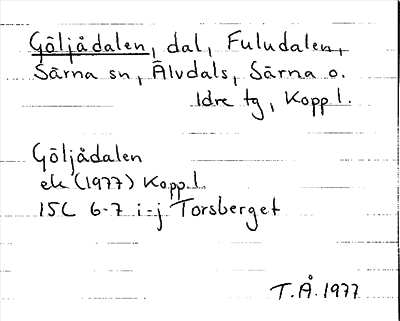 Göljådalen, dal, Fuludalen,
Särna sn, Älvdals, Särna o.
Idre tg, Kopp l.
Göljådalen
ek (1977) Kopp.l.
15C 6-7 i-j Torsberget
T.Å. 1977